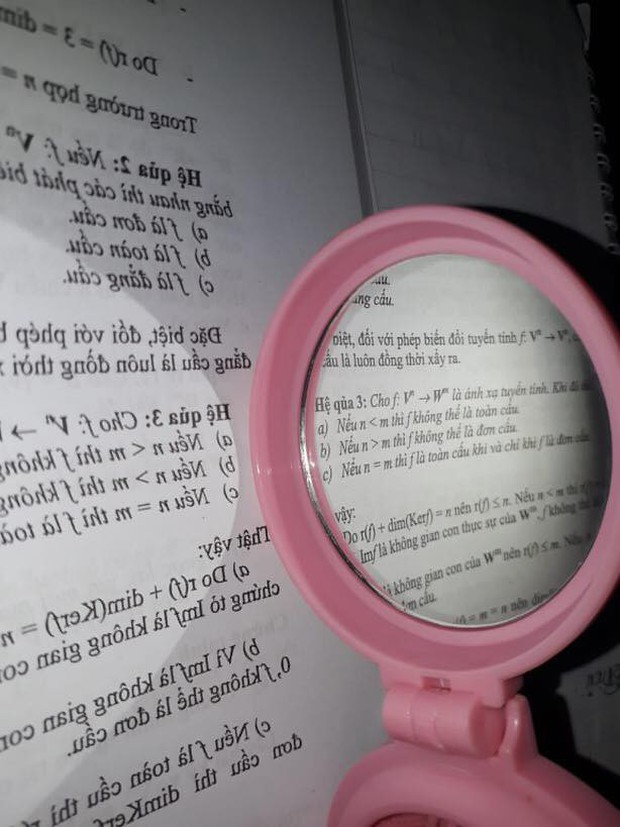 Do r(f) = 3 = dim
Trong trường hợp n =
Hệ qủa 2: Nếu f: Vⁿ
bằng nhau thì các phát biể
a) f là đơn cấu.
b) f là toàn cấu.
c) f là đẳng cấu.
Đặc biệt, đối với phép b
đẳng cấu là luôn đồng thời x
Hệ qủa 3: Cho f: Vⁿ →
a) Nếu n < m thì f không
b) Nếu n > m thì f không
c) Nếu n = m thì f là toà
Thật vậy:
a) Do r(f) + dim(Kerf) = n
chứng tỏ Imf là không gian con
b) Vì Imf là không gian con
0, f không thể là đơn cấu.
c) Nếu f là toàn cấu thì r
đơn cấu thì dimKerf
cấu.
ng cấu.
biệt, đối với phép biến đổi tuyến tính f: Vⁿ → Vⁿ,
cấu là luôn đồng thời xẩy ra.
Hệ qủa 3: Cho f: Vⁿ → Wᵐ là ánh xạ tuyến tính. Khi đó
a) Nếu n < m thì f không thể là toàn cấu.
b) Nếu n > m thì f không thể là đơn cấu.
c) Nếu n = m thì f là toàn cấu khi và chỉ khi f là đơn cấu
vậy:
Do r(f) + dim(Kerf) = n nên r(f) ≤ n. Nếu n < m thì
Imf là không gian con thực sự của Wᵐ, f không thể
là không gian con của Wᵐ nên r(f) ≤ m. Nếu
đơn cấu.
= m = n nên dim